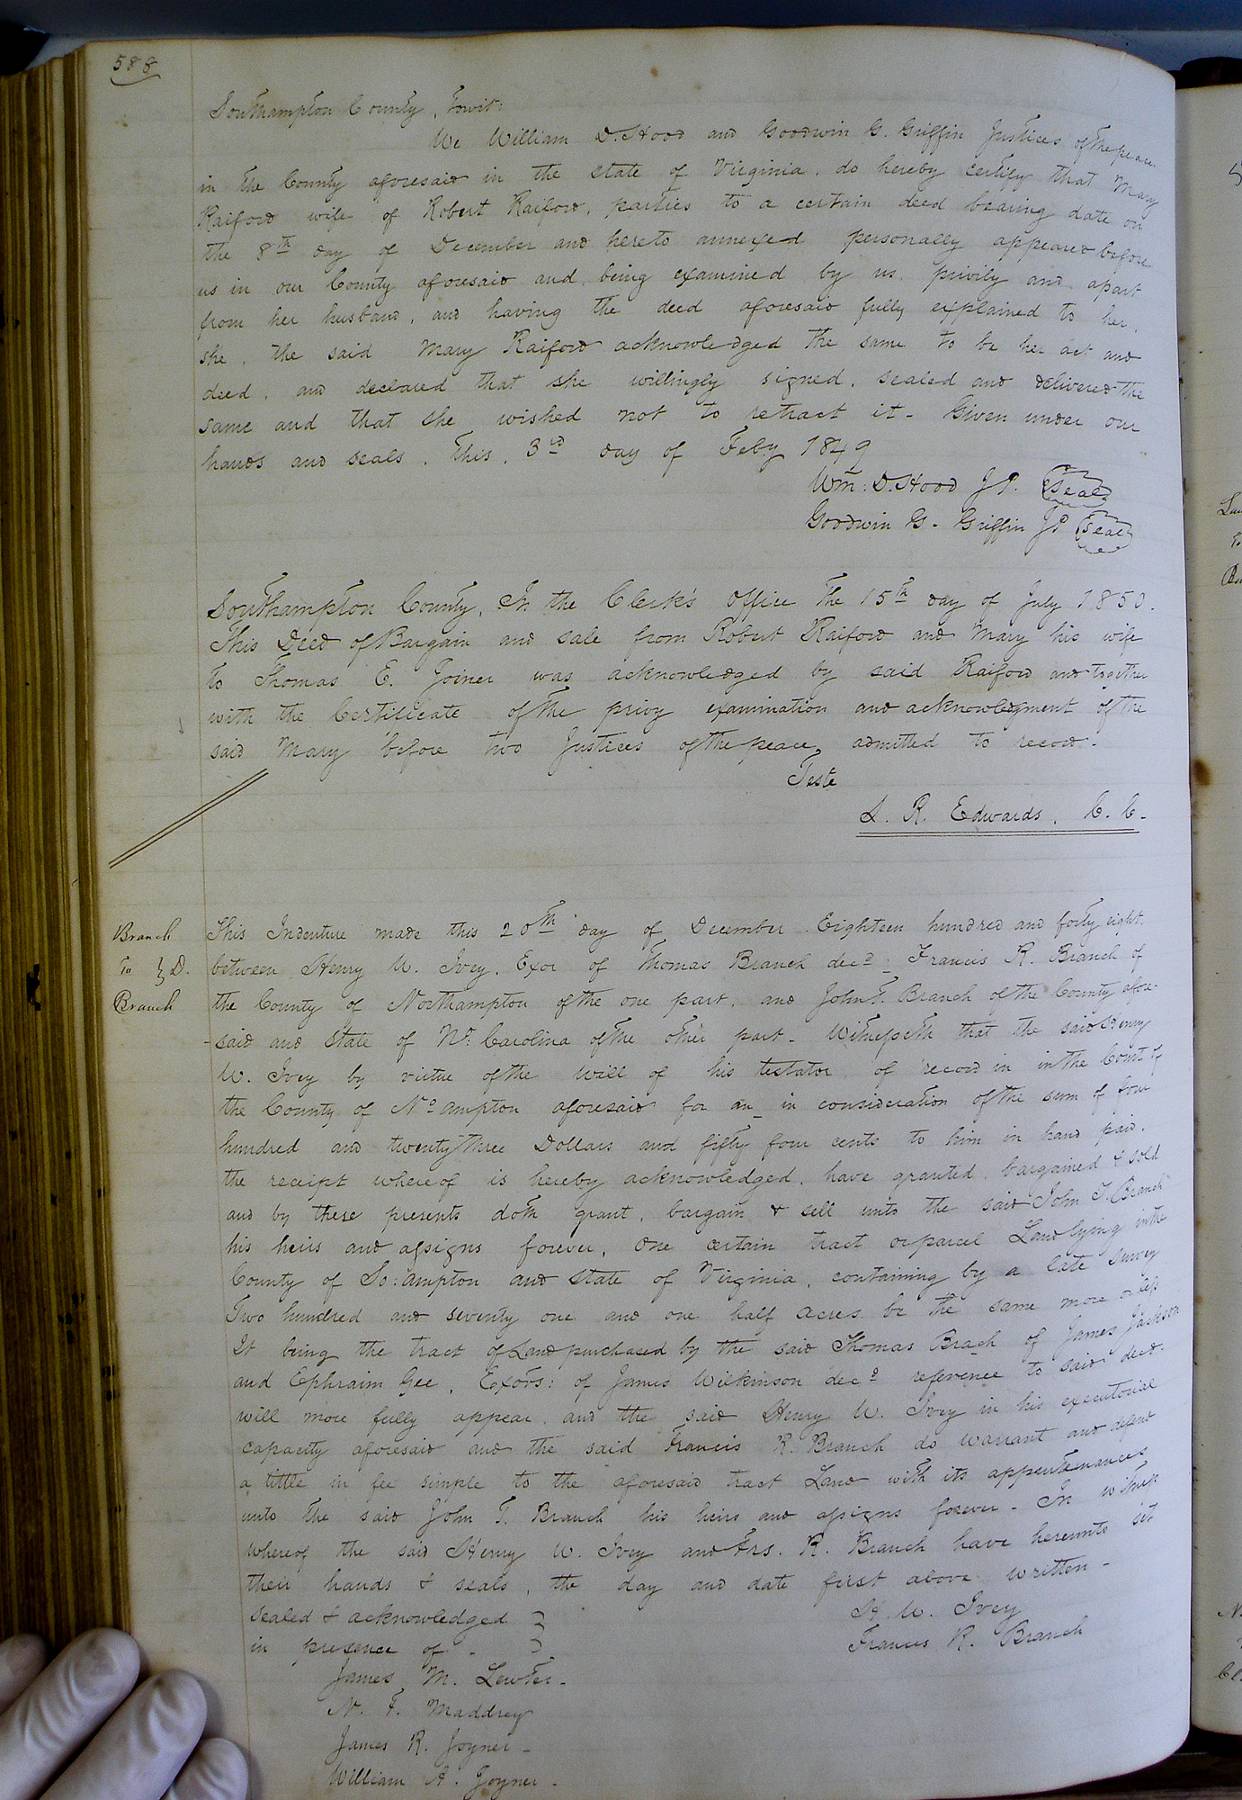 588
Southampton County, towit:
We William D. Hood and Goodwin G. Griffin Justices of the peace
in the County aforesaid in the state of Virginia, do hereby certify that Mary
Raiford wife of Robert Raiford, parties to a certain deed bearing date on
the 8th day of December and hereto annexed personally appeared before
us in our County aforesaid and being examined by us privily and apart
from her husband, and having the deed aforesaid fully explained to her,
she, the said Mary Raiford acknowledged the same to be her act and
deed, and declared that she willingly signed, sealed and delivered the
same and that she wished not to retract it - Given under our
hands and seals, this, 3rd day of Feby 1849
Wm: D. Hood J P. (Seal)
Goodwin G. Griffin JP (Seal)
Southampton County, In the Clerk's Office the 15th day of July 1850.
This Deed of Bargain and sale from Robert Raiford and Mary his wife
to Thomas E. Joiner was acknowledged by said Raiford and together
with the Certificate of the privy examination and acknowledgment of the
said Mary before two Justices of the peace, admitted to record.
Teste
L. R. Edwards, C. C.
Branch
To } D.
Branch
This Indenture made this 20th day of December Eighteen hundred and forty eight.
between Henry W. Ivey, Exor of Thomas Branch decd: Francis R. Branch of
the County of Northampton of the one part, and John T. Branch of the County afore
-said and State of No. Carolina of the other part - Witnesseth that the said Henry
W. Ivey by virtue of the will of his testator of record in in the Court of
the County of No ampton aforesaid for an_ in consideration of the sum of four
hundred and twenty three Dollars and fifty four cents to him in hand paid,
the receipt whereof is hereby acknowledged, have granted, bargained & sold
and by these presents doth grant, bargain & sell unto the said John T. Branch
his heirs and assigns forever, One certain tract or parcel Land lying in the
County of So:ampton and State of Virginia, containing by a late survey
Two hundred and seventy one and one half acres be the same more or less
It being the tract of Land purchased by the said Thomas Brach of James Jackson
and Ephraim Gee, Exors: of James Wilkinson decd reference to said deed
will more fully appear, and the said Henry W. Ivey in his executorial
capacity aforesaid and the said Francis R. Branch do warrant and defend
a tittle in fee simple to the aforesaid tract Land with its appurtenances
unto the said John T. Branch his heirs and assigns forever - In witness
whereof the said Henry W. Ivey and Frs. R. Branch have hereunto set
their hands & seals, the day and date first above written -
Sealed & acknowledged } H. W. Ivey
in presence of - } Francis R. Branch
James M. Lewter -
N. F. Maddrey
James R. Joyner -
William A. Joyner -